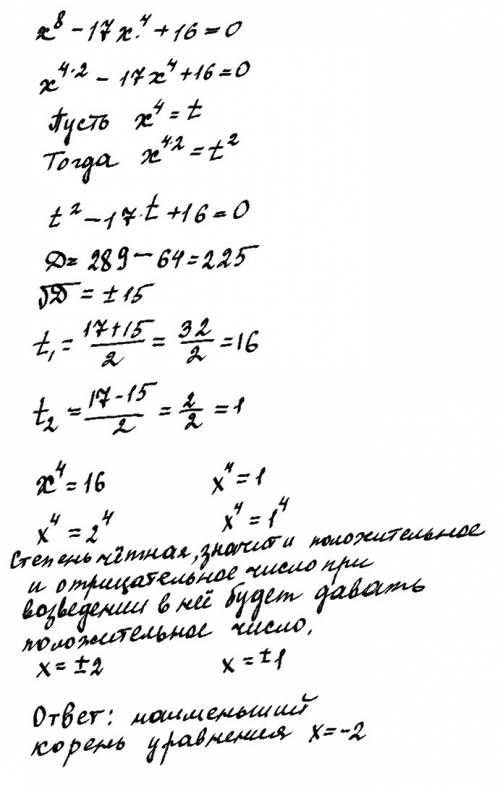 x⁸ - 17x⁴ + 16 = 0
x⁴·² - 17x⁴ + 16 = 0
Пусть x⁴ = t
Тогда x⁴·² = t²
t² - 17·t + 16 = 0
Д = 289 - 64 = 225
√Д = ±15
t₁ = (17+15)/2 = 32/2 = 16
t₂ = (17-15)/2 = 2/2 = 1
x⁴ = 16 x⁴ = 1
x⁴ = 2⁴ x⁴ = 1⁴
Степень чётная, значит и положительное
и отрицательное число при
возведении в неё будет давать
положительное число.
x = ±2 x = ±1
Ответ: наименьший
корень уравнения x = -2